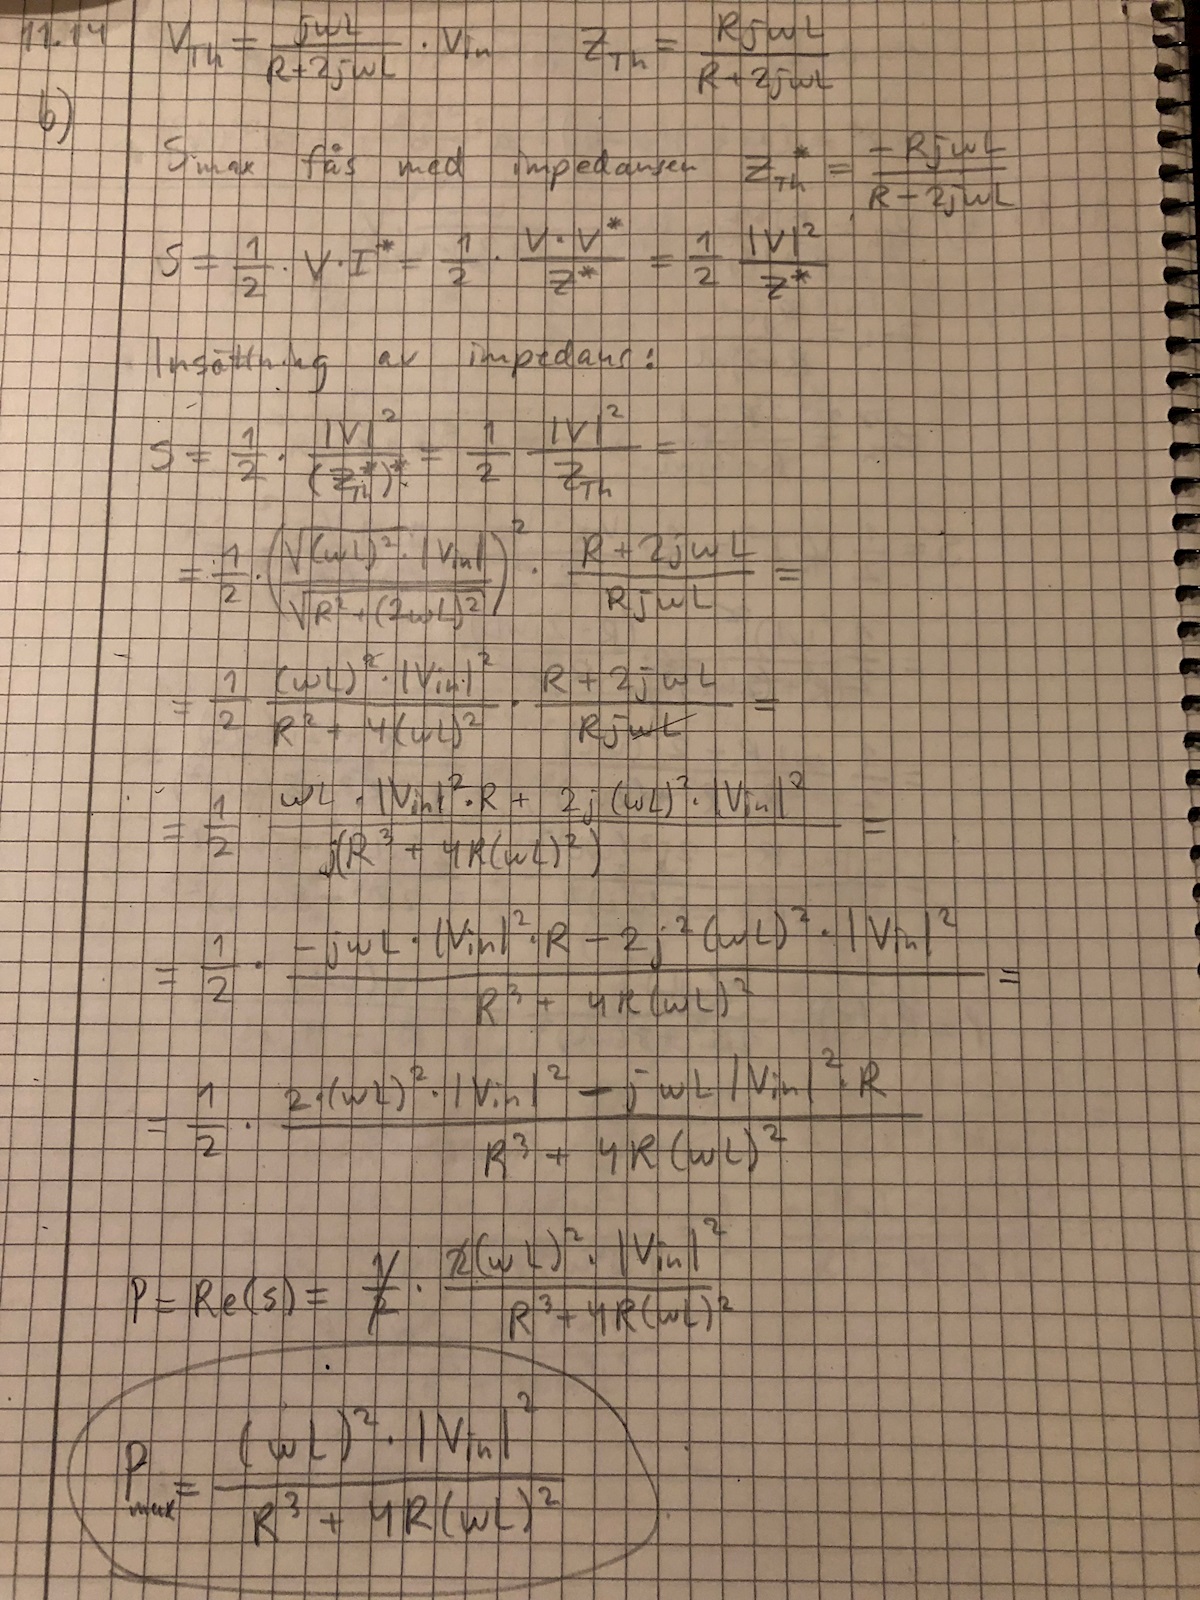 11.14 V_Th = jwL / (R+2jwL) · Vin Z_Th = RjwL / (R+2jwL)
b)
Smax fås med impedansen Z_Th* = -RjwL / (R-2jwL)
S = 1/2 · V·I* = 1/2 · V·V* / Z* = 1/2 |V|² / Z*
Insättning av impedans:
S = 1/2 · |V|² / (Z_Th*)* = 1/2 |V|² / Z_Th =
= 1/2 · (√(wL)² · |Vin| / √(R²+(2wL)²))² · (R+2jwL) / RjwL =
= 1/2 (wL)² · |Vin|² / (R² + 4(wL)²) · (R + 2jwL) / RjwL =
= 1/2 (wL · |Vin|² · R + 2j(wL)² · |Vin|²) / j(R³ + 4R(wL)²) =
= 1/2 · (-jwL · |Vin|² · R - 2j²(wL)² · |Vin|²) / (R³ + 4R(wL)²) =
= 1/2 · (2·(wL)² · |Vin|² - jwL|Vin|²·R) / (R³ + 4R(wL)²)
P = Re(s) = 1/2 · 2(wL)² · |Vin|² / (R³+4R(wL)²)
Pmax = (wL)² · |Vin|² / (R³ + 4R(wL)²)